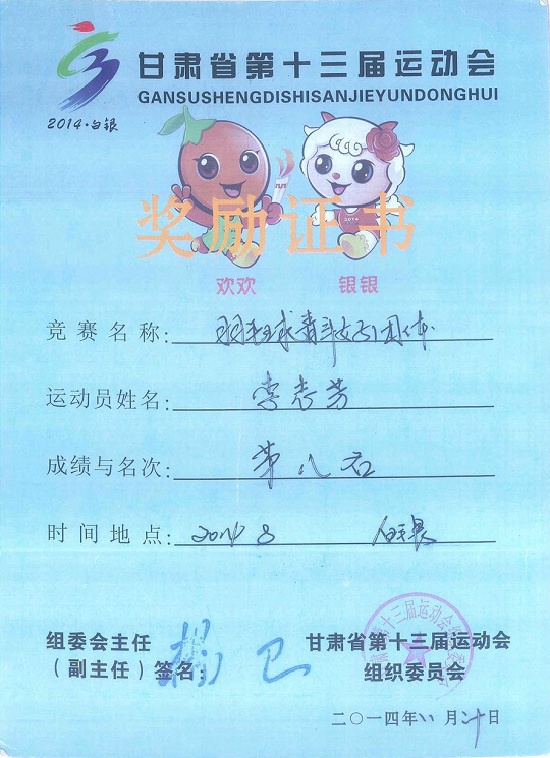 甘肃省第十三届运动会
GANSUSHENGDISHISANJIEYUNDONGHUI
2014·白银
奖励证书
欢欢 银银
竞赛名称: 羽毛球青年女子团体
运动员姓名: 李志芳
成绩与名次: 第八名
时间地点: 2014 8 白银
组委会主任 甘肃省第十三届运动会
(副主任)签名: 组织委员会
二〇一四年八月二十日